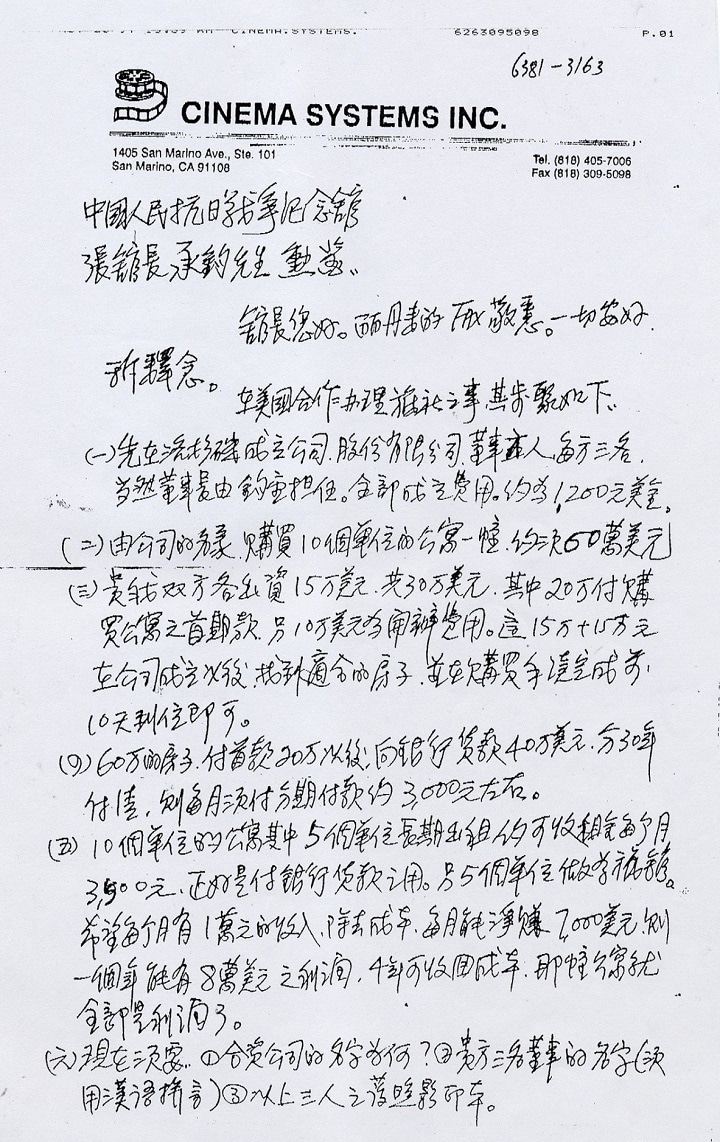 CINEMA.SYSTEMS. 6263095098 P.01
6381-3163
CINEMA SYSTEMS INC.
1405 San Marino Ave., Ste. 101
San Marino, CA 91108
Tel. (818) 405-7006
Fax (818) 309-5098
中國人民抗日战爭纪念舘
張舘長承鈞先生 勳鑒:
舘長您好。一切安好
釋念。
在美國合作办理旅社之事其步驟如下:
(一)先在洛杉磯成立公司.股份有限公司.董事 人.每方三名.
当然董事長由 担任。全部成立费用.约为1,200元美金.
(二)由公司的名義.購買10個單位的公寓一幢.约须60萬美元
(三)貴我双方各出資15万美元.共30万美元.其中20万付購
買公寓之首期款.另10万美元为開辦费用。這15万+15万元
在公司成立以後.找到適合的房子.並在購買手續完成前.
10天到位即可。
(四)60万的房子.付首款20万以後.向銀行貸款40万美元.分30年
付清.则每月须付分期付款约3,000元左右。
(五)10個單位的公寓其中5個單位長期出租约可收租金每个月
3,500元.正好是付銀行貸款之用。另5個單位做为旅舘。
希望每个月有1萬元的收入.除去成本.每月能淨賺7,000美元.则
一個年能有8萬美元之利润.4年可收回成本.那幢公寓就
全部是利润了。
(六)现在须要:①合资公司的名字为何?②貴方三名董事的名字(须
用漢語拼音)③以上三人之護照影印本。